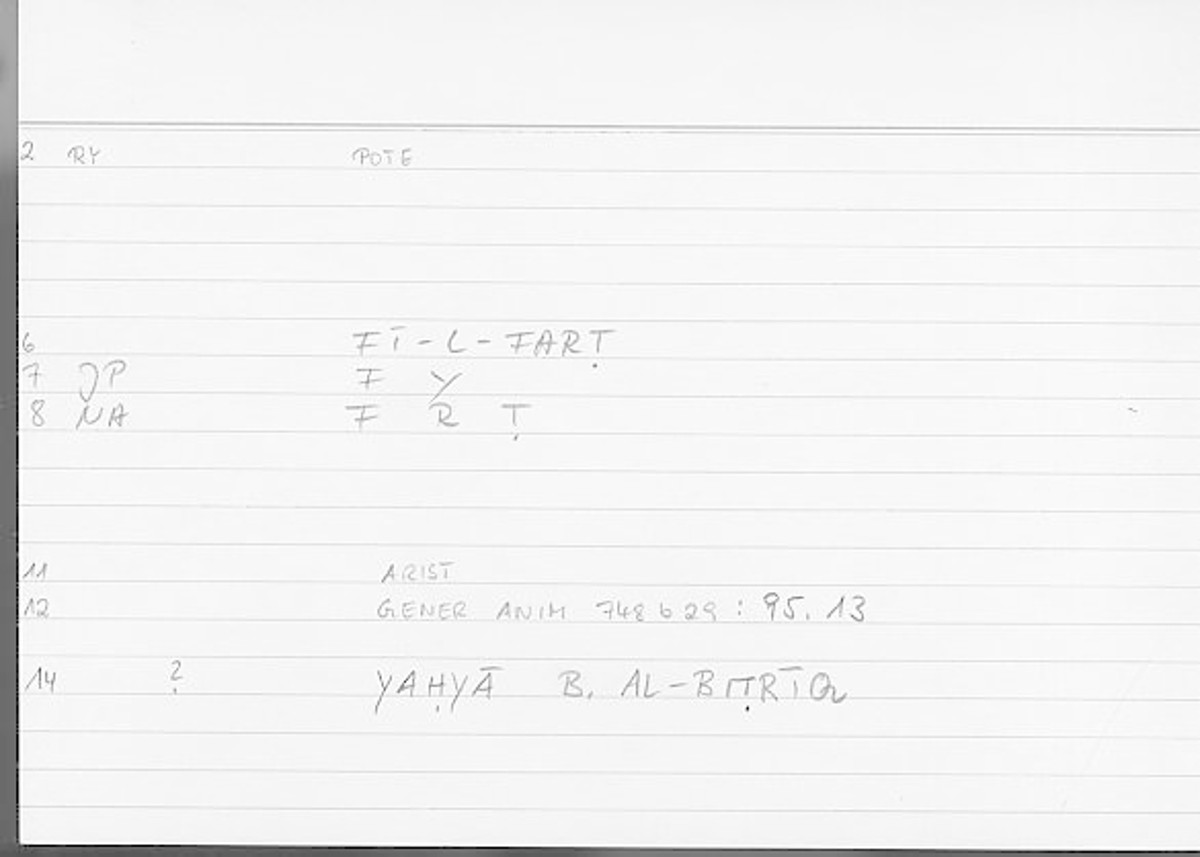 2 RY POTE
6 FĪ-L-FARṬ
7 JP F Y
8 NA F R Ṭ
11 ARIST
12 GENER ANIM 748 b 29 : 95.13
14 ? YAḤYĀ B. AL-BIṬRĪQ